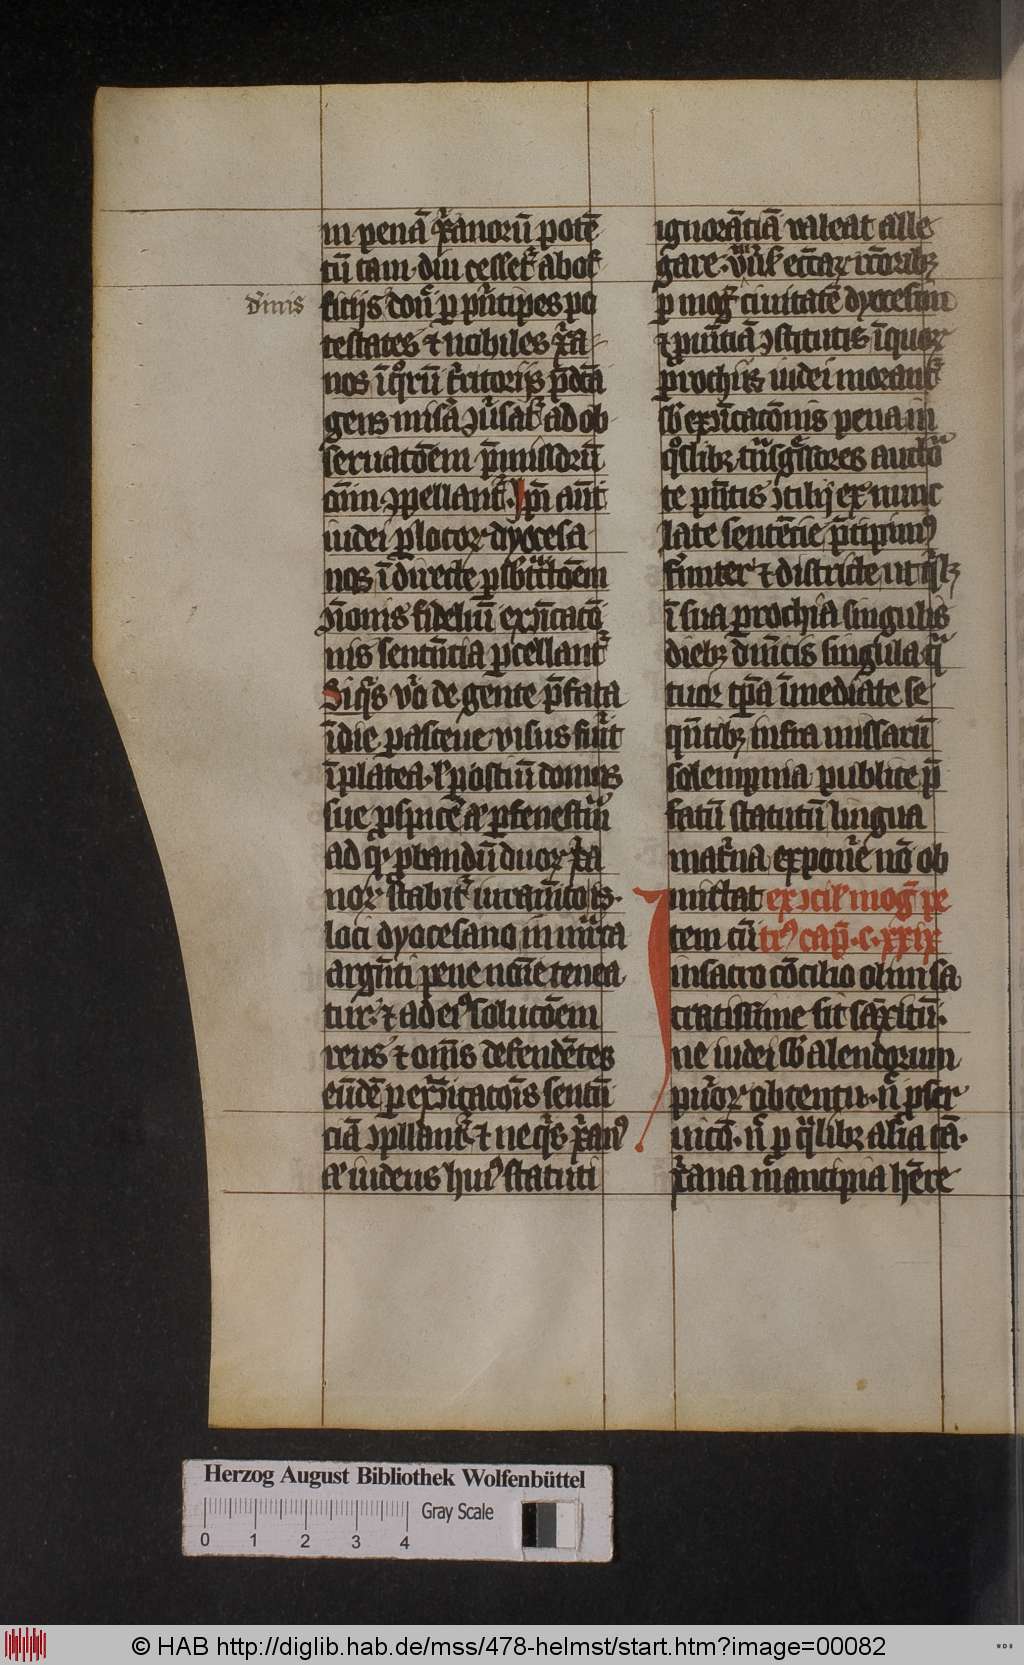 in penā xp̄ianorū potē
tū tam diu cesset̉ ab of
diuis
ficijs donͨ ꝑ pͥncipes po
testates ⁊ nobiles xp̄ia
nos ī qͦrū t̉ritorijs p̄dc̄a
gens misͣa ꝯu̓sat̉ ad ob
seruatōem p̄missorū
om̄īn ꝯpellant̉ Ip̄i aūt
iudei ꝑ locoꝝ dyocesa
nos ī directe ꝑ sbͣt͛ctōem
ꝯ̄ionis fidelium exꝯ̄icatō
nis sentn̄cia ꝑcellant̉
Siqͥs vͦo de gente p̄fata
ī die parasceue visus fūit
ī platea l̉ ꝑ ostiū domus
sue ꝑspicē aͥ ꝑ fenestrā
ad qͦ ꝑbandū duoꝝ xp̄ia
noꝝ stabit̉ iuramēto is
loci dyocesano in mͣrca
argn̄ti pene noīe tenea
tur ⁊ ad eiꝰ solucōem
reus ⁊ om̄s defendētes
eūdē ꝑ exꝯ̄icatōis sentn̄
ciā ꝯpllant̉ ⁊ ne qͥs xp̄ianꝰ
aͥ iudeus huiꝰ statuti
ignorātiā valeat alle
gare vniu̓s ecc̄aꝝ rc̄oribꝫ
ꝑ mog̉ ciuitatē dyocesim
⁊ ꝓuīciā ꝯstitutis ī quoꝝ
ꝑrochijs iudei morant̉
sb̄ exꝯ̄icatōnis pena in
qͦslibꝫ tͣnsgͤssores auctͦi
te pn̄tis ꝯcilij ex nunc
late sentēcie p̄cipimꝰ
firmiter ⁊ districte ut qͥlꝫ
ī sua ꝑrochia singulis
diebꝫ dn̄icis singula qͣ
tuor tp̄a īmediate se
qn̄tibꝫ infra missarū
solempnia publice p̄
fatū statutū lingua
mat̉na exponͤe nō ob
mittat ex ꝯcil̉ mog̉ pe
Item cū trꝰ cap̄ .c.xxix
in sacro cōcilio olim sa
cratissime sit sāxitū
ne iudei sb̄ alendorum
pu̓oꝝ obtentu n̉ ꝓ ser
uicō n̉ ꝓ qͣlibꝫ al̉ia cā
xp̄iana mancipia hēre
Herzog August Bibliothek Wolfenbüttel
Gray Scale
0 1 2 3 4
© HAB http://diglib.hab.de/mss/478-helmst/start.htm?image=00082